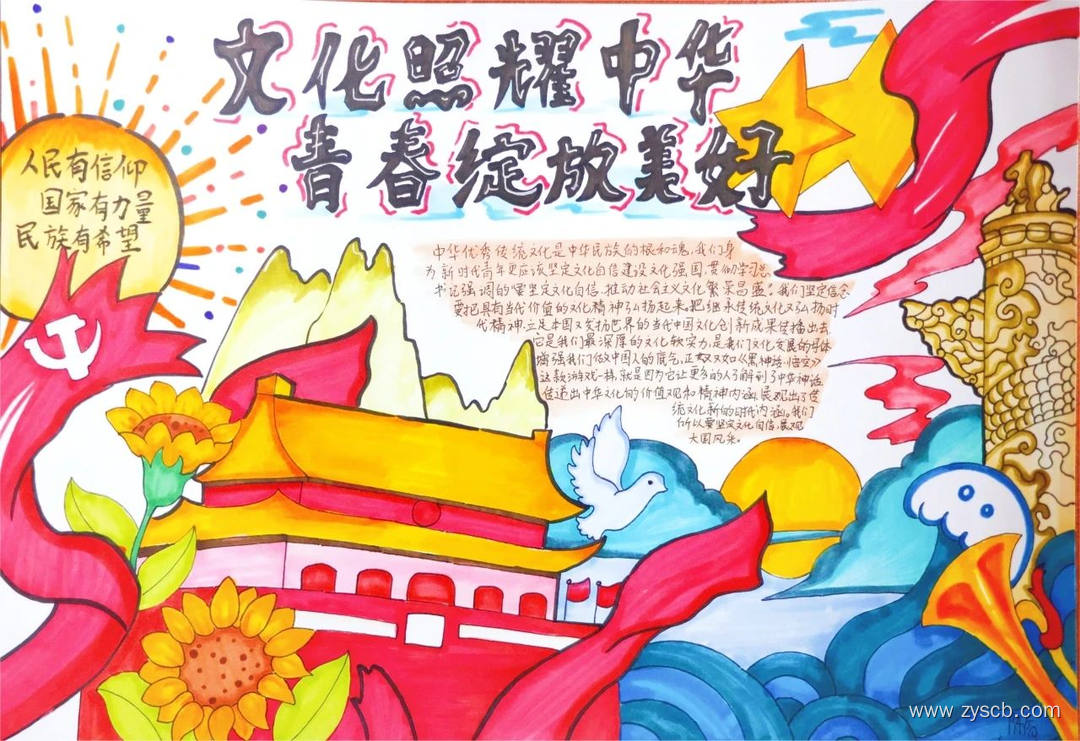 文化照耀中华
青春绽放美好
人民有信仰
国家有力量
民族有希望
中华优秀传统文化是中华民族的根和魂,我们身
为新时代青年更应该坚定文化自信建设文化强国,贯彻学习总
书记强调的"要坚定文化自信,推动社会主义文化繁荣昌盛。"我们坚定信念
要把具有当代价值的文化精神弘扬起来。把继承传统文化又弘扬时
代精神,立足本国又发扬世界的当代中国文化创新成果传播出去
它是我们最深厚的文化软实力,是我们文化发展的母体
增强我们做中国人的底气,正如《黑神话·悟空》
这款游戏一样,就是因为它让更多的人了解到了中华神话
传递出中华文化的价值观和精神内涵,展现出了传
统文化新的时代内涵。我们
所以要坚定文化自信,展现
大国风采。
www.zyscb.com